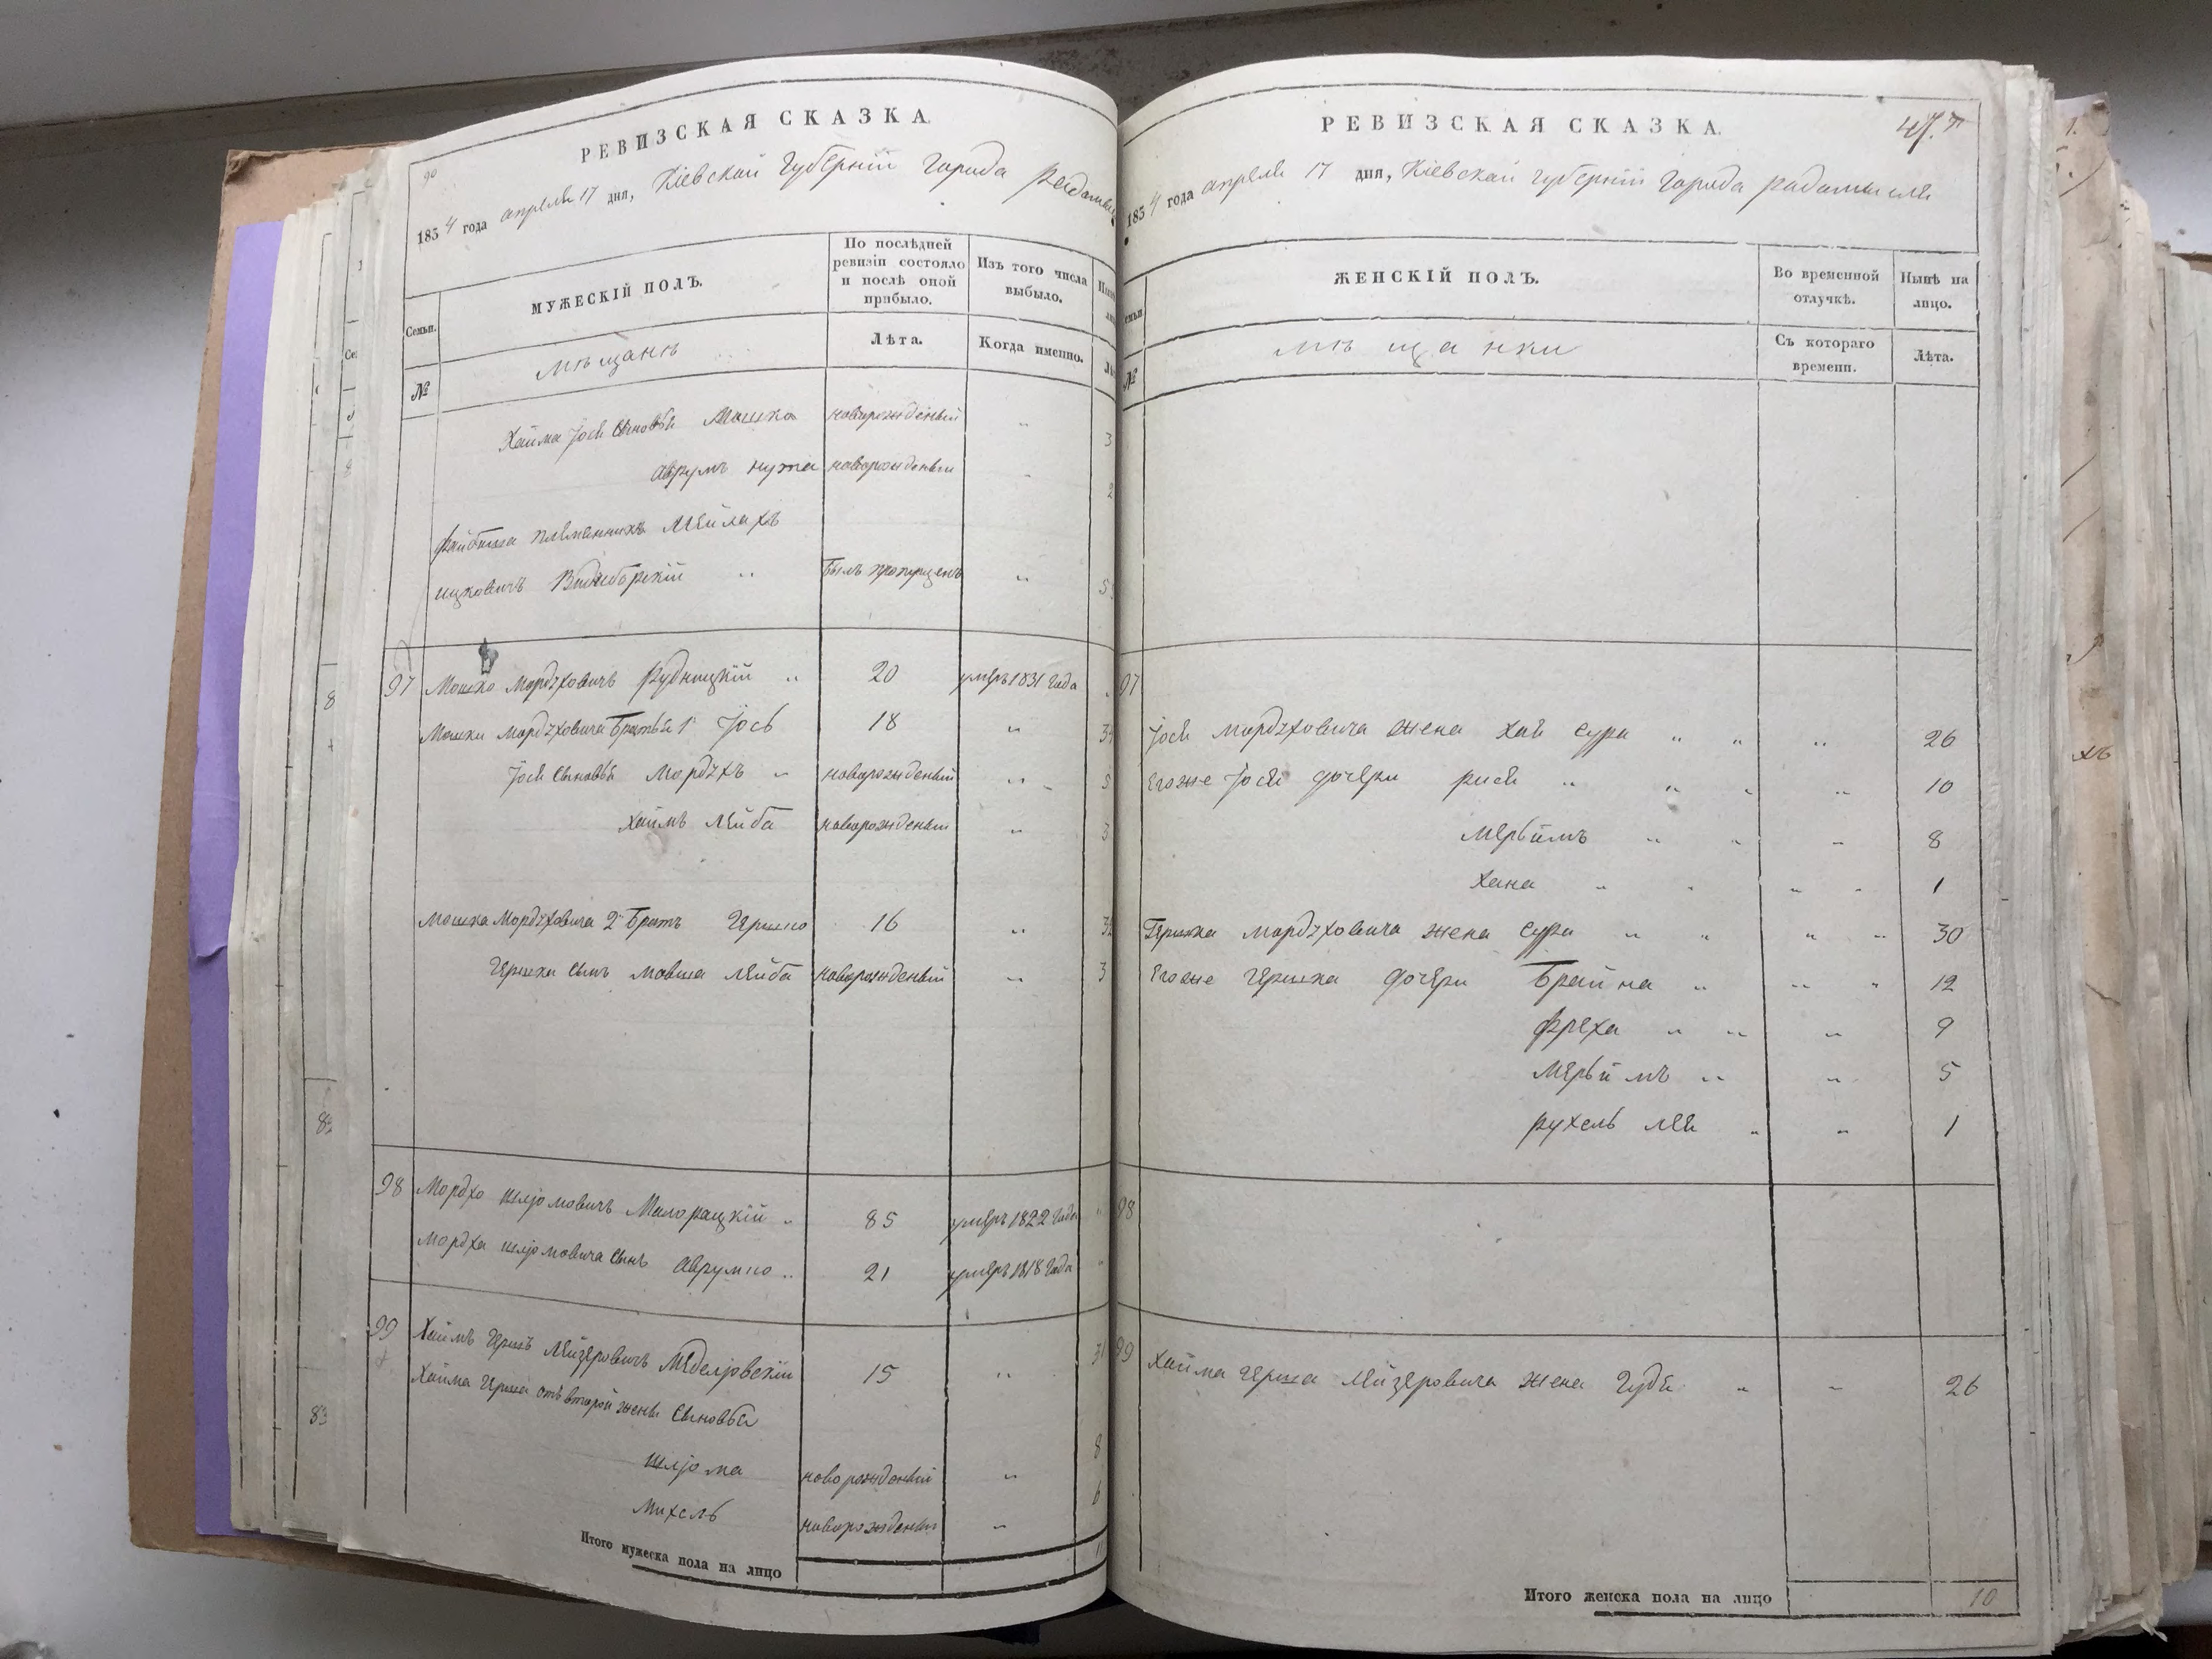 РЕВИЗСКАЯ СКАЗКА.
90
1854 года апреля 17 дня, Кіевской Губерніи Города Радомы
Семьи.
МУЖЕСКІЙ ПОЛЪ.
По послѣдней ревизіи состояло и послѣ оной прибыло.
Изъ того числа выбыло.
№
мѣщанъ
Лѣта.
Когда именно.
Хаима Іося сыновья Мошко новорожденый " 3
Аврумъ нута новорожденый " 2
Файбиша племянникъ Мейлахъ
ицковичъ " былъ пропущенъ "
97 Мошко Мордуховичъ Рудницкій " 20 умеръ 1831 Года
Мошки Мордуховича Братья 1й Іось 18 "
Іося Сыновья Мордухъ " новорожденый "
хаимъ Лейба новорожденый " 3
Мошка Мордуховича 2й Братъ Гершко 16 "
Гершки сынъ Мовша Лейба новорожденый " 3
98 Мордко шліомовичъ Малорацкій " 85 умеръ 1822 Года
Мордха шліомовича сынъ Аврумко " 21 умеръ 1818 Года
99 Хаимъ Гершъ Лейзеровичъ 15 " 31
Хаима Герша отъ второй жены Сыновья
шліома новорожденый " 8
Михель новорожденый " 6
Итого мужеска пола на лицо
РЕВИЗСКАЯ СКАЗКА.
47.
1854 года апреля 17 дня, Кіевской губерніи Города радомысля
ЖЕНСКІЙ ПОЛЪ.
Во временной отлучкѣ.
Нынѣ на лицо.
№
мѣщанки
Съ котораго времени.
Лѣта.
97
Іося Мордуховича жена хая сура " " " 26
Егоже Іося дочери рися " " " " 10
Меръимъ " " " 8
хана " " " " 1
Гершка мордуховича жена сура " " " " 30
Егоже Гершка дочери Брайна " " " 12
фреха " " " 9
Меръимъ " " 5
рухель лея " " 1
98
99 Хаима Герша Лейзеровича жена Гудя " " 26
Итого женска пола на лицо 10